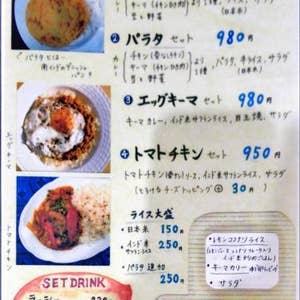 キーマ(チキンひき肉)
豆と野菜
(日本米)
② パラタ セット 980円
チキン(骨なしチキン)
キーマ(チキンひき肉)
豆と野菜
より1種
パラタ、半ライス、サラダ
(日本米)
パラタとは…
南インドのデニッシュパン
③ エッグキーマ 980円
キーマカレー、インド米サフランライス、目玉焼、サラダ
エッグキーマ
④ トマトチキン セット 950円
トマトチキン(骨なし)、インド米サフランライス、サラダ
(とろけるチーズトッピング ⊕ 30円)
トマトチキン
ライス大盛
・日本米 150円
・インド米 サフランライス 250円
・パラタ追加 250円
・レモンココナツライス
・キーマカリー
・サラダ
SET DRINK
ラッシー